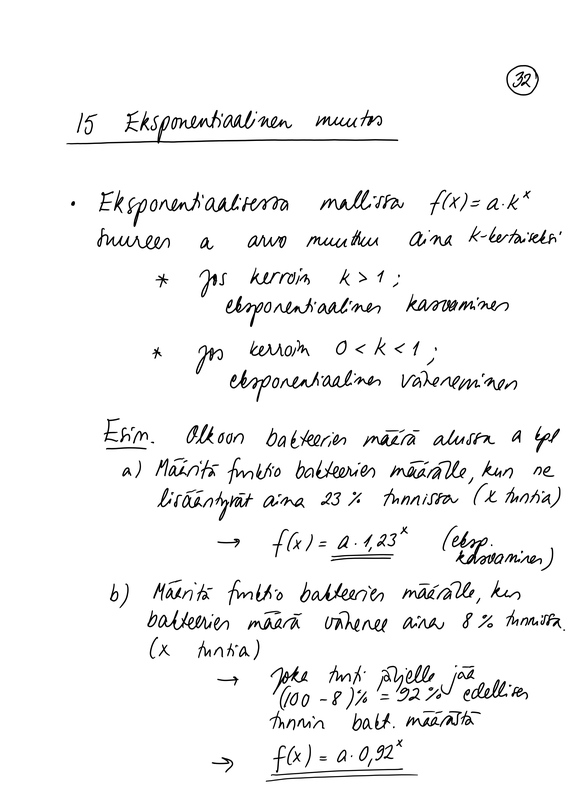 32
15 Eksponentiaalinen muutos
• Eksponentiaalisessa mallissa f(x) = a·k^x
suureen a arvo muuttuu aina k-kertaiseksi
* Jos kerroin k > 1 ;
eksponentiaalinen kasvaminen
* Jos kerroin 0 < k < 1 ;
eksponentiaalinen väheneminen
Esim. Olkoon bakteerien määrä alussa a kpl
a) Määritä funktio bakteerien määrälle, kun ne
lisääntyvät aina 23 % tunnissa (x tuntia)
→ f(x) = a·1,23^x (eksp.
kasvaminen)
b) Määritä funktio bakteerien määrälle, kun
bakteerien määrä vähenee aina 8 % tunnissa.
(x tuntia)
→ Joka tunti jäljelle jää
(100 - 8)% = 92 % edellisen
tunnin bakt. määrästä
→ f(x) = a·0,92^x